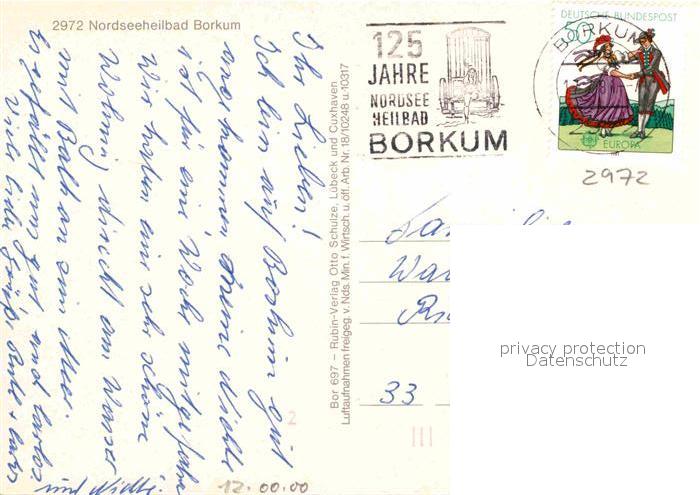 2972 Nordseeheilbad Borkum
125
JAHRE
NORDSEE
HEILBAD
BORKUM
DEUTSCHE BUNDESPOST
50
BORKUM
EUROPA
2972
Ihr Lieben!
Ich bin auf Borkum gut
angekommen. Meine Nichte
ist für eine Woche mitgefahren
Wir haben eine sehr schöne
Wohnung direkt am Wasser
mit Balkon zum Meer.
Es gefällt mir gut, und
Viele liebe Grüße
und Nichte.
Bor 697 – Rubin-Verlag Otto Schulze, Lübeck und Cuxhaven
Luftaufnahmen freigeg. v. Nds. Min. f. Wirtsch. u. öff. Arb. Nr. 18/10248 u. 10317
33
2
12.00.00
privacy protection
Datenschutz